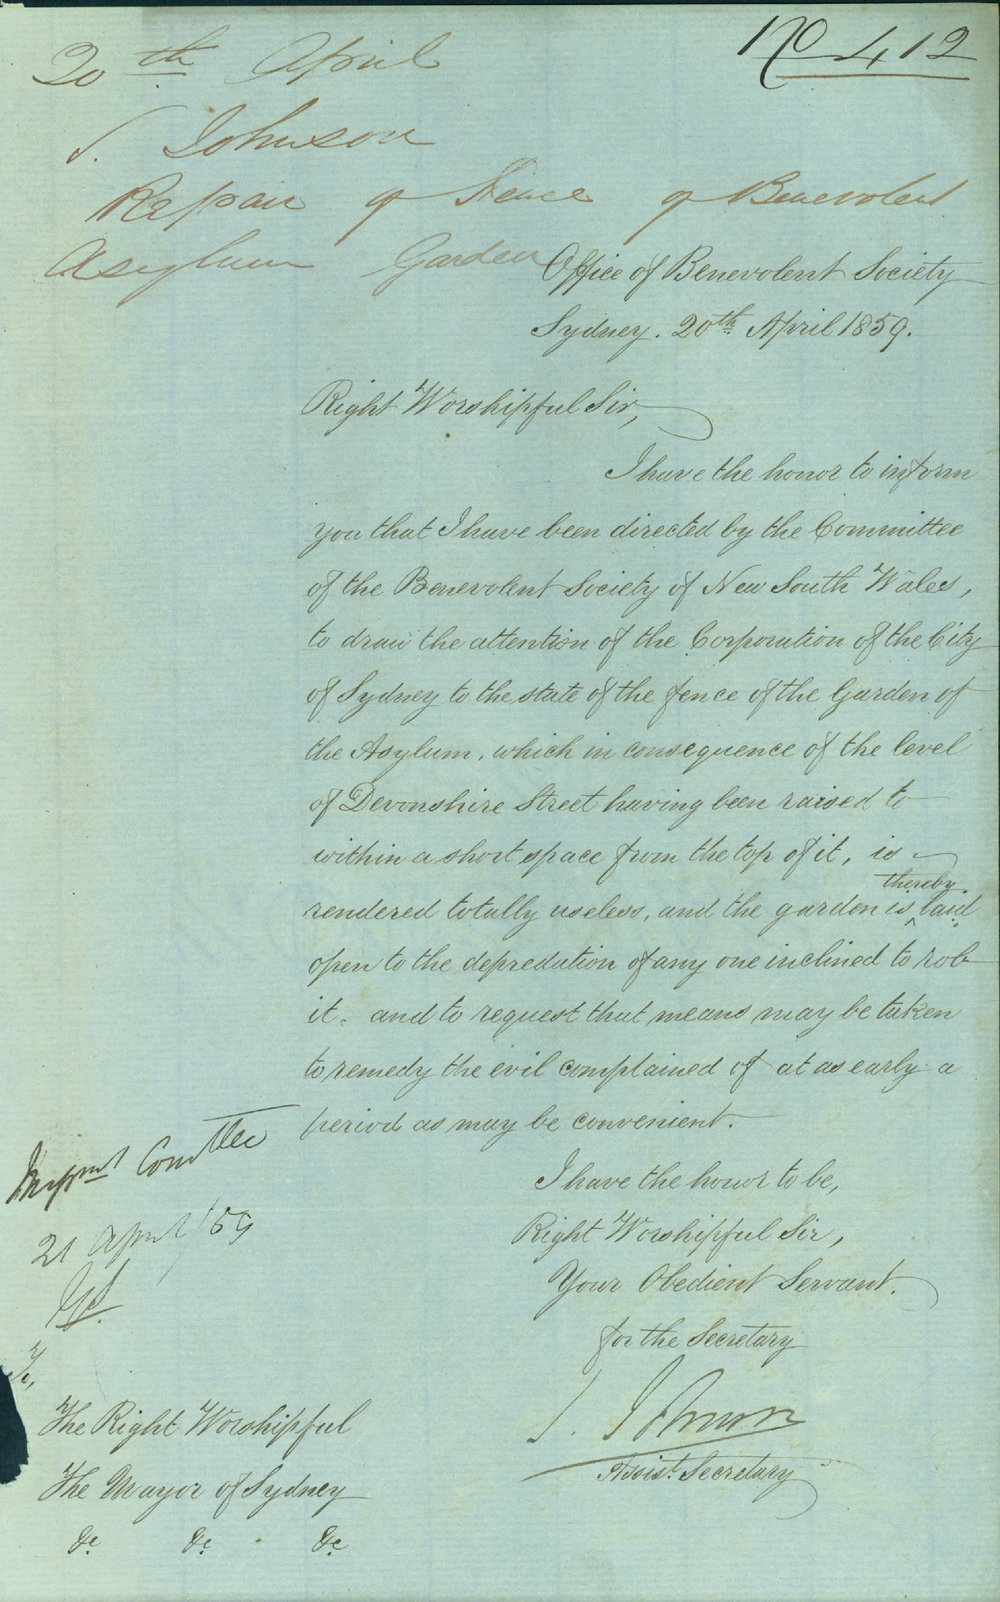 No 412
20th April
S. Johnson
Repair of Fence of Benevolent
Asylum Garden
Office of Benevolent Society
Sydney. 20th April 1859.
Right Worshipful Sir,
I have the honor to inform
you that I have been directed by the Committee
of the Benevolent Society of New South Wales,
to draw the attention of the Corporation of the City
of Sydney to the state of the fence of the Garden of
the Asylum, which in consequence of the level
of Devonshire Street having been raised to
within a short space from the top of it, is
rendered totally useless, and the garden is thereby laid
open to the depredation of any one inclined to rob
it. and to request that means may be taken
to remedy the evil complained of at as early a
period as may be convenient.
I have the honor to be,
Right Worshipful Sir,
Your Obedient Servant.
for the Secretary
S. Johnson
Assist. Secretary
Impmt Comttee
21 April /59
To,
The Right Worshipful
The Mayor of Sydney
&c &c &c